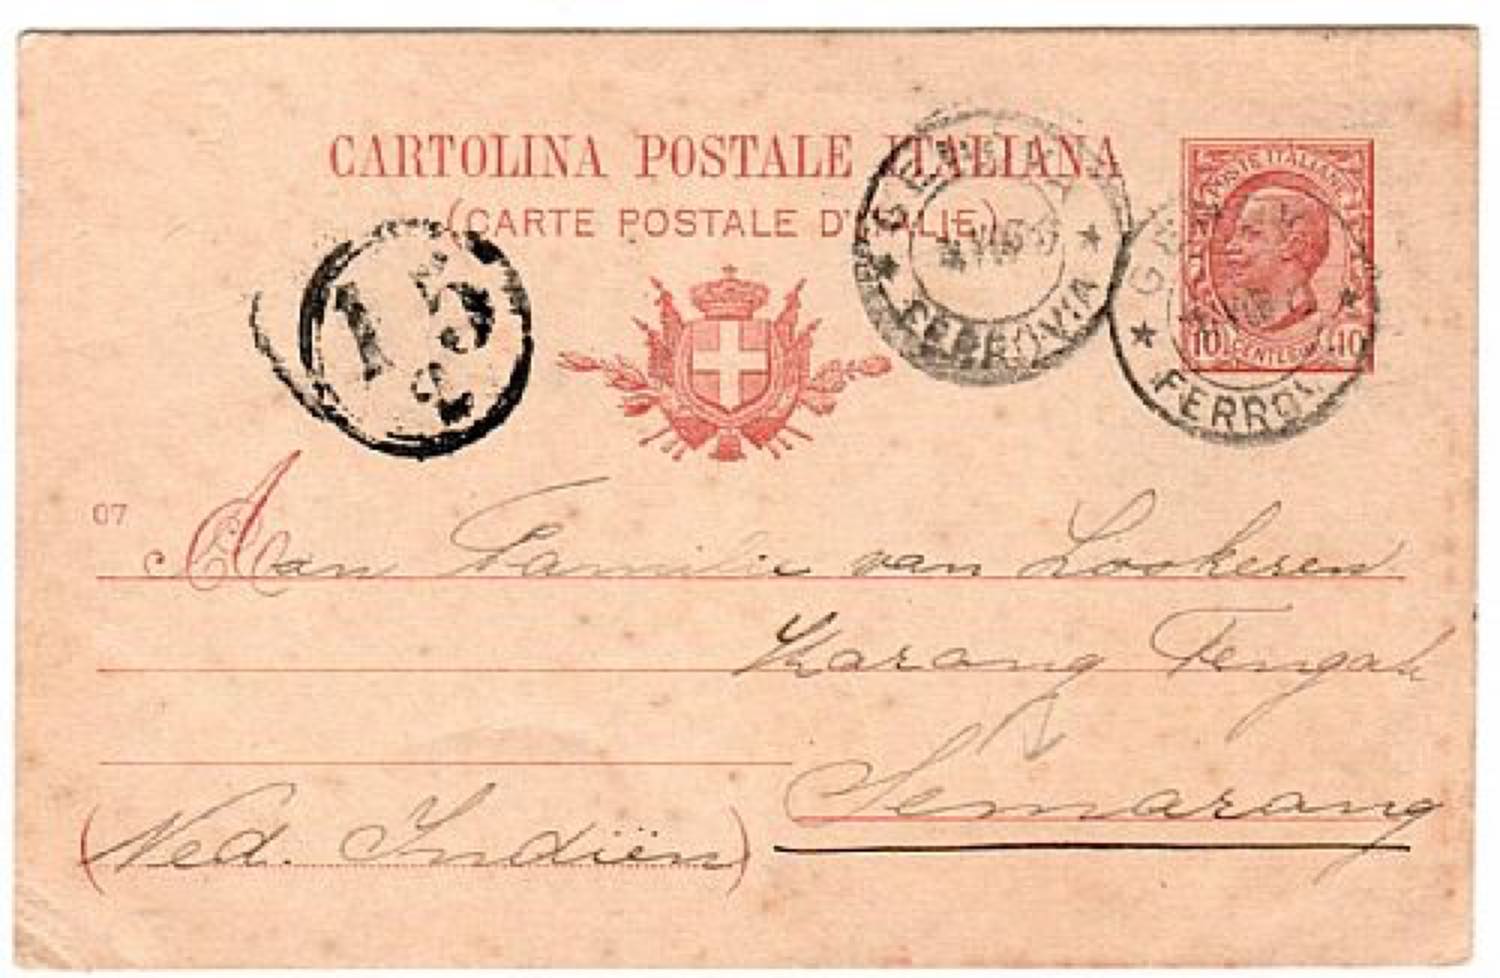 CARTOLINA POSTALE ITALIANA
(CARTE POSTALE D'ITALIE)
POSTE ITALIANE
10 CENTESIMI 10
GENOVA
FERROVIA
FERROV
07
Aan Familie van Lookeren
Karang Tengah
Semarang
(Ned. Indiën)